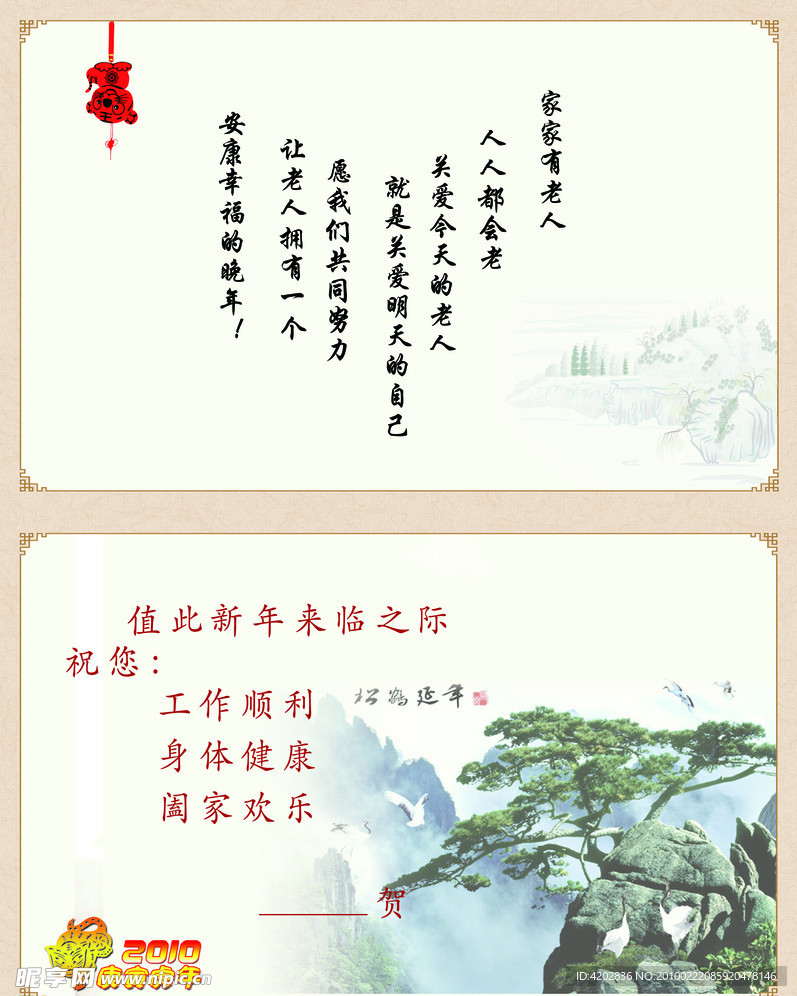 家家有老人
人人都会老
关爱今天的老人
就是关爱明天的自己
愿我们共同努力
让老人拥有一个
安康幸福的晚年！
值此新年来临之际
祝您：
工作顺利
身体健康
阖家欢乐
松鹤延年
贺
2010
庚寅虎年
昵享网 www.nipic.cn
ID:4202836 NO:20100222085920478146